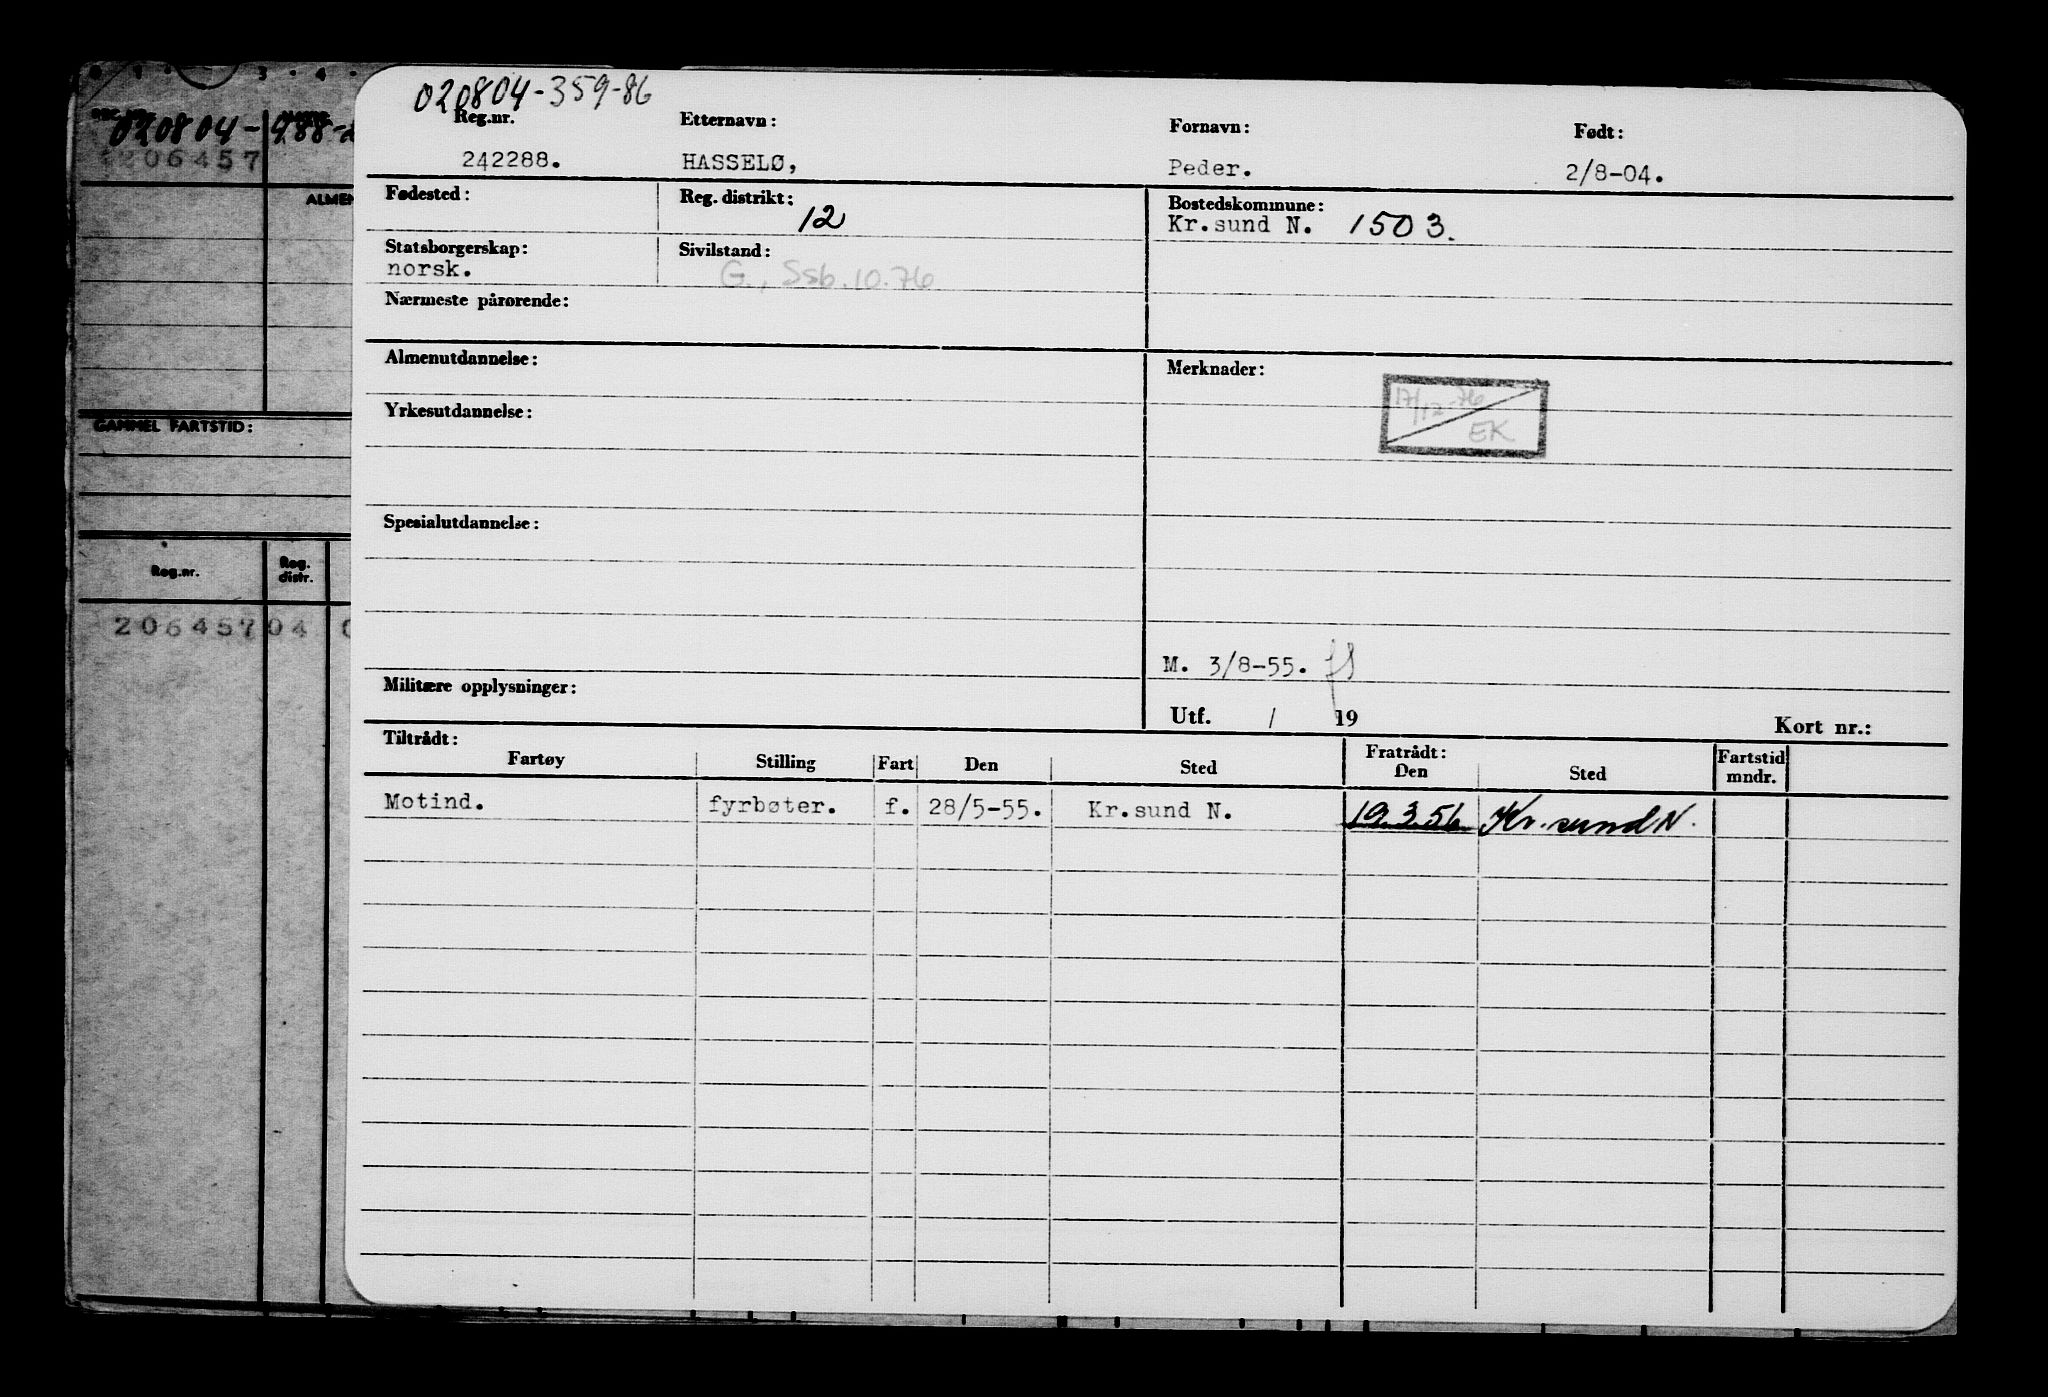 020804-359-86
Reg.nr. Etternavn: Fornavn: Født:
242288. HASSELØ, Peder. 2/8-04.
Fødested: Reg. distrikt: 12 Bostedskommune:
Kr.sund N. 1503.
Statsborgerskap: Sivilstand:
norsk. G., Ssb.10.76
Nærmeste pårørende:
Almenutdannelse: Merknader:
17/12-76
EK
Yrkesutdannelse:
Spesialutdannelse:
M. 3/8-55.
Militære opplysninger:
Utf. / 19 Kort nr.:
Tiltrådt: Fratrådt:
Fartøy Stilling Fart Den Sted Den Sted Fartstid mndr.
Motind. fyrbøter. f. 28/5-55. Kr.sund N. 19.3.56 Kr.sund N.
020804-
206457
ALMEN
GAMMEL FARTSTID:
Reg.nr. Reg. distr.
206457 04